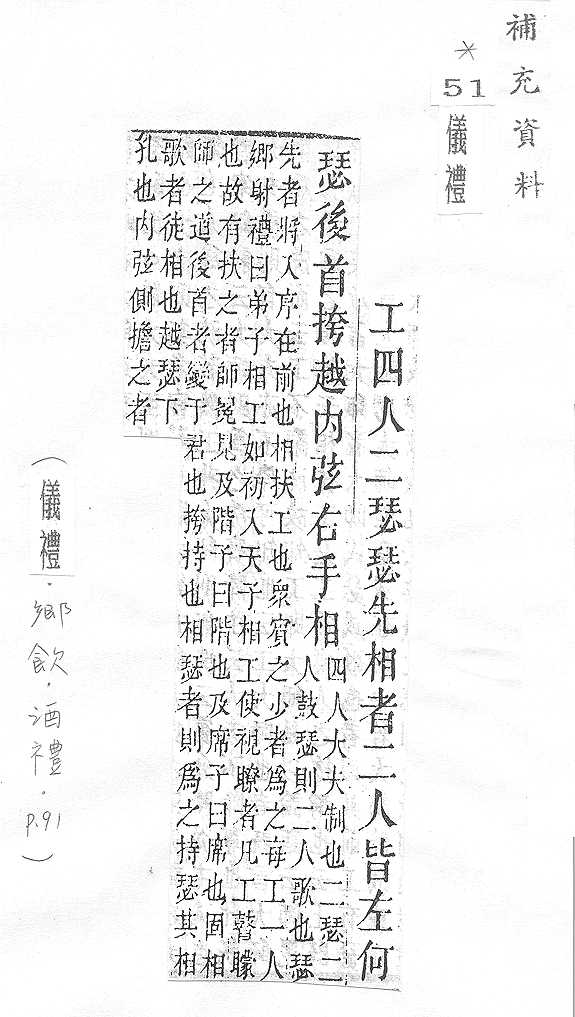 補充資料
*
51
儀禮
工四人二瑟瑟先相者二人皆左何
瑟後首挎越内弦右手相四人大夫制也二瑟二
人鼓瑟則二人歌也瑟
先者將入序在前也相扶工也眾賓之少者爲之每工一人
鄉射禮曰弟子相工如初入天子相工使視瞭者凡工瞽矇
也故有扶之者師冕見及階子曰階也及席子曰席也固相
師之道後首者變于君也挎持也相瑟者則爲之持瑟其相
歌者徒相也越瑟下
孔也内弦側擔之者
(儀禮.鄉飲.酒禮.p.91)